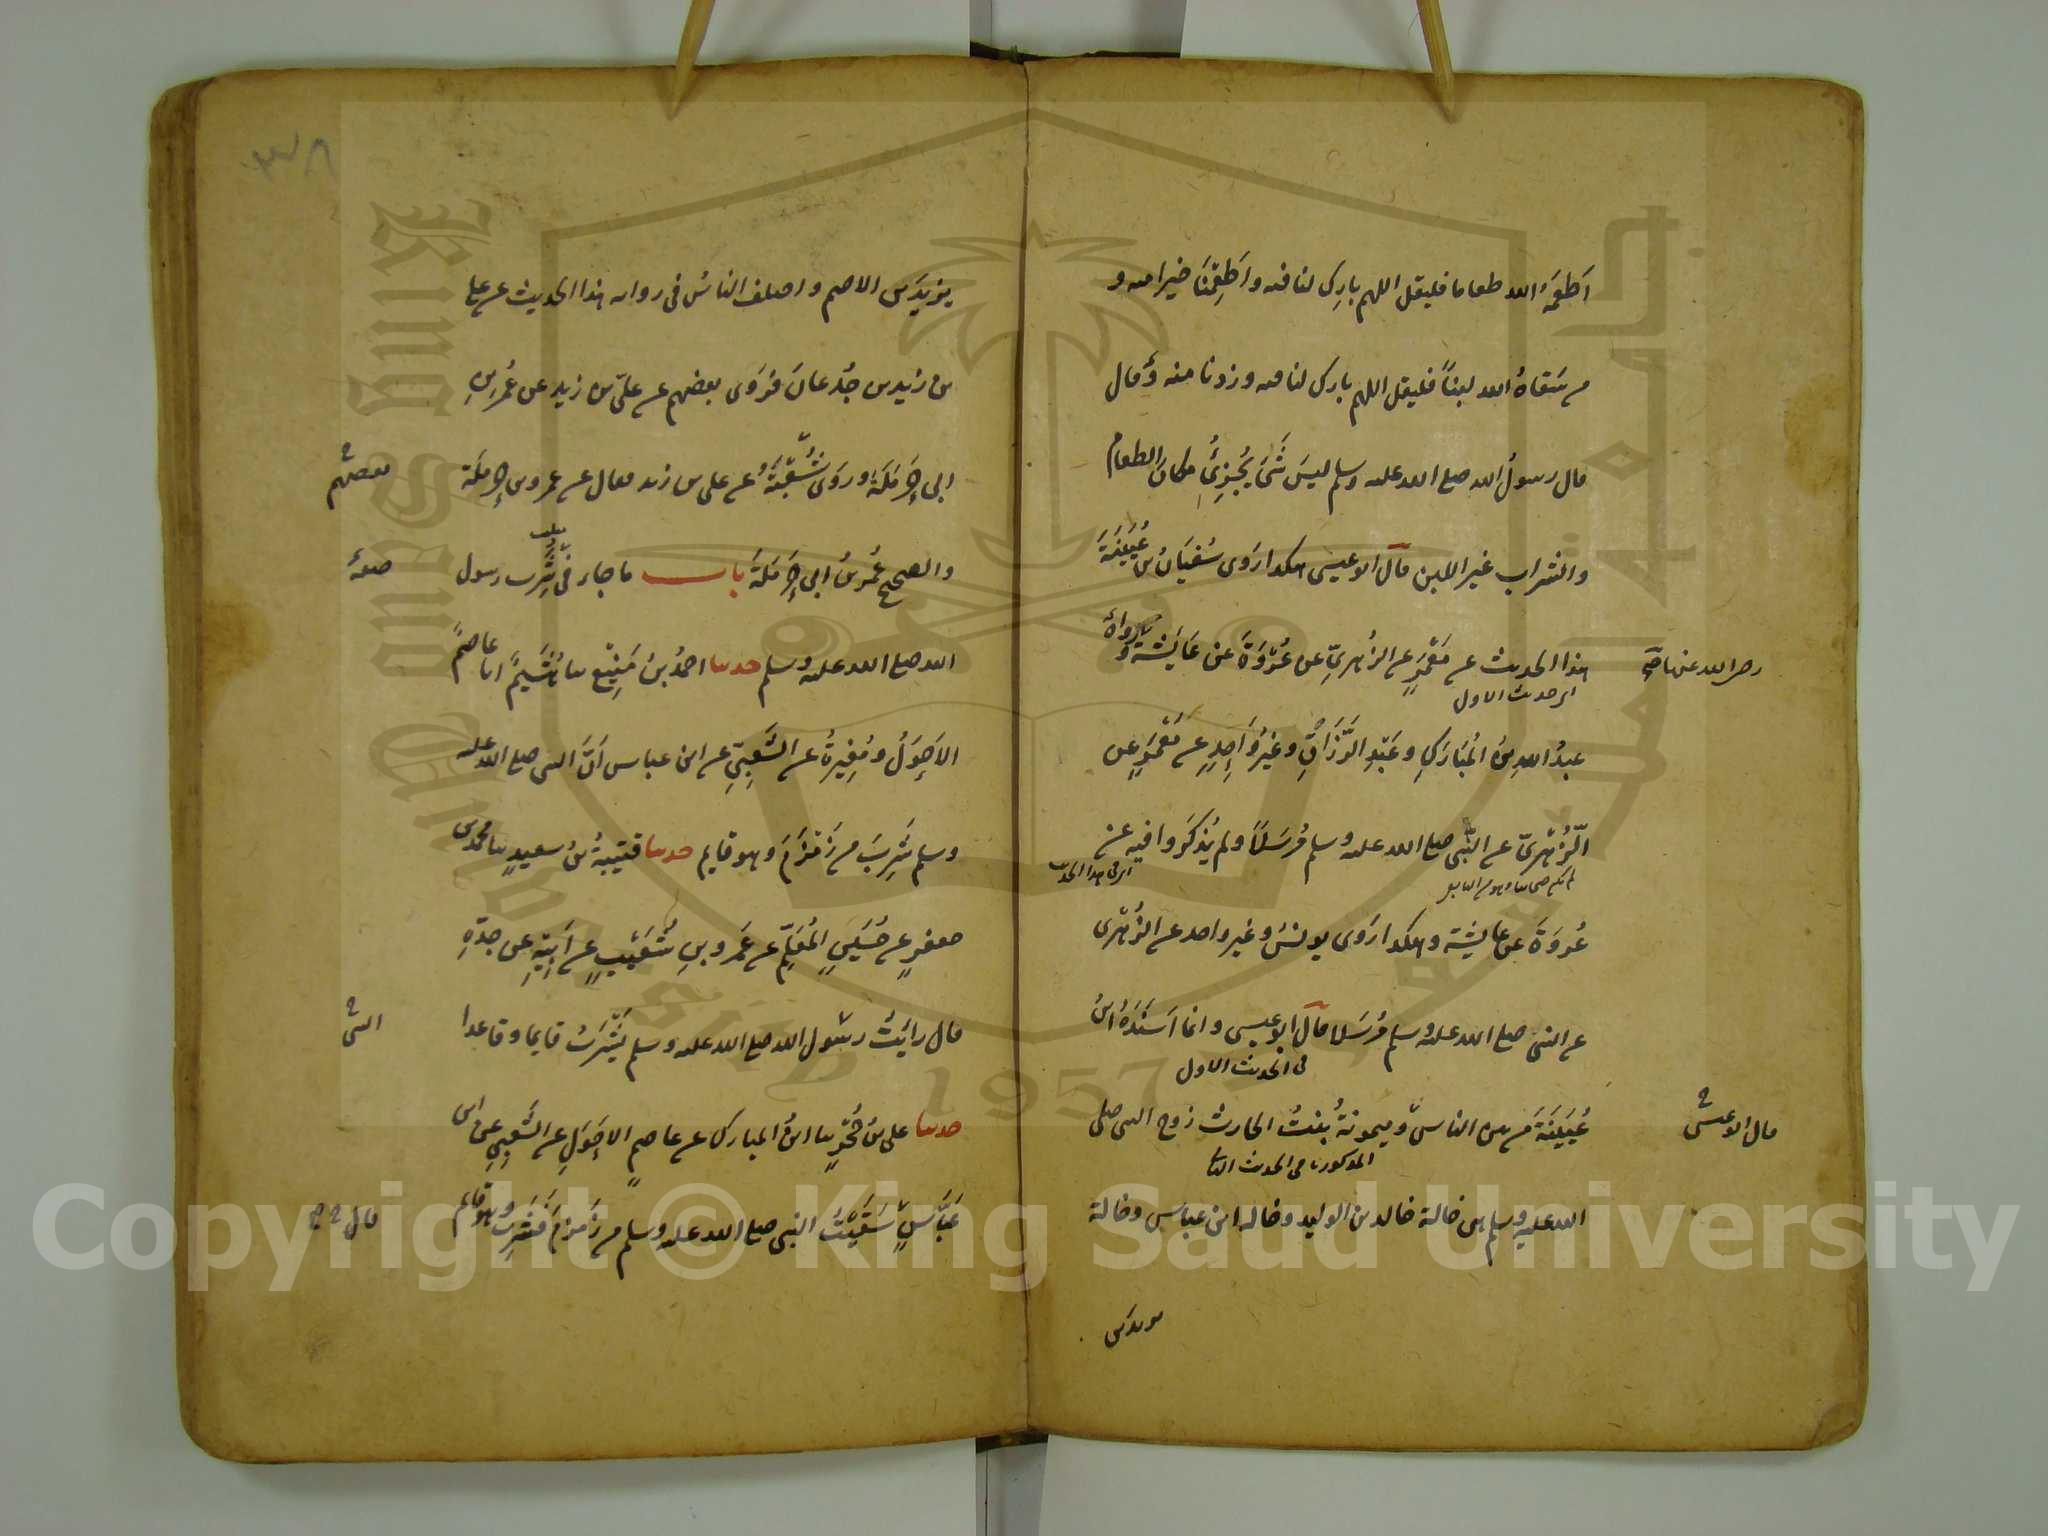 اَطعَمَهُ الله طعاما فليقل اللهم بارِك لنا فيه واَطعِمْنَا خيرا منه و
من سَقاهُ الله لبنًا فليقل اللهم بارك لنا فيه وزدنا منه وقال
قال رسولُ الله صلى الله عليه وسلم ليسَ شَىٌ يُجْزِئُ مكانَ الطعام
والشراب غير اللبن قال ابو عيسى هكذا رَوى سُفيَانُ بن عُيَيْنَةَ
هذا الحديث عن مَعْمَرٍ عن الزُهرِيِّ عن عُرْوَةَ عن عَايشة ورواهُ
رضى الله عنها
اى حديث الاول
عبدُ اللهِ بنُ المُبَارَكِ وعَبْدِ الرَّزَاقِ وغيرُ وَاحِدٍ عن مَعْمَرٍ عن
الزُهْرِىِّ عن النّبى صلى الله عليه وسلم مُرسَلاً ولم يُذكَروا فيه عن
اى فى هذا الحديث
عُروَةَ عن عايشة وهكذا رَوى يونسُ وغير واحد عن الزُهْرى
عن النبى صلى الله عليه وسلم مُرسَلا قال ابو عيسى وانما اَسنَدَهُ ابنُ
فى الحديث الاول
عُيَيْنَةَ من بين الناس وميمونةُ بنتُ الحارث زوج النبى صلى
قال ابو عيسى
المذكورة فى الحديث
الله عليه وسلم هى خالة خالد بن الوليد وخالة ابن عباس وخالة
يزيدَ بن الاصم واختلف الناسُ فى رواية هذا الحديث عن على
بن زيد بن جُدعانَ فرَوَى بعضهم عن علىّ بن زيد عن عُمَرَ بنِ
ابى حَرمَلَةَ ورَوى شُعْبَةُ عن على بن زيد فقال عن عمرو بن حرمَلَة
بعضهم
والصحيح عُمَرُ بنُ ابى حَرْمَلَةَ باب ما جاء فى شُرب رسول
صفة
الله صلى الله عليه وسلم حدثنا احمدُ بنُ مَنِيْع ثنا هُشَيمٌ انا عاصمٌ
الاَحوَلُ ومُغِيْرةُ عن الشَّعبِيِّ عن ابن عباس اَنَّ النبى صلى الله عليه
وسلم شَرِبَ من زَمْزَمَ وهو قايم حدثنا قتيبةُ بنُ سعيدٍ ثنا محمد بن
جعفرٍ عن حُسَينٍ المُعَلِّمِ عن عَمرو بنِ شُعَيْبٍ عن اَبِيْهِ عن جدّهِ
قال رايتُ رسُول الله صلى الله عليه وسلم يَشْرَبُ قايما وقاعدا
النبى
حدثنا على بنُ حُجْرٍ ثنا ابنُ المبارك عن عاصمٍ الاَحوَلِ عن الشَّعبِىِ عن ابن
عَبَّاسٍ سَقَيْتُ النبى صلى الله عليه وسلم من زَمزمَ فَشَرِبَ وهو قايم
قال